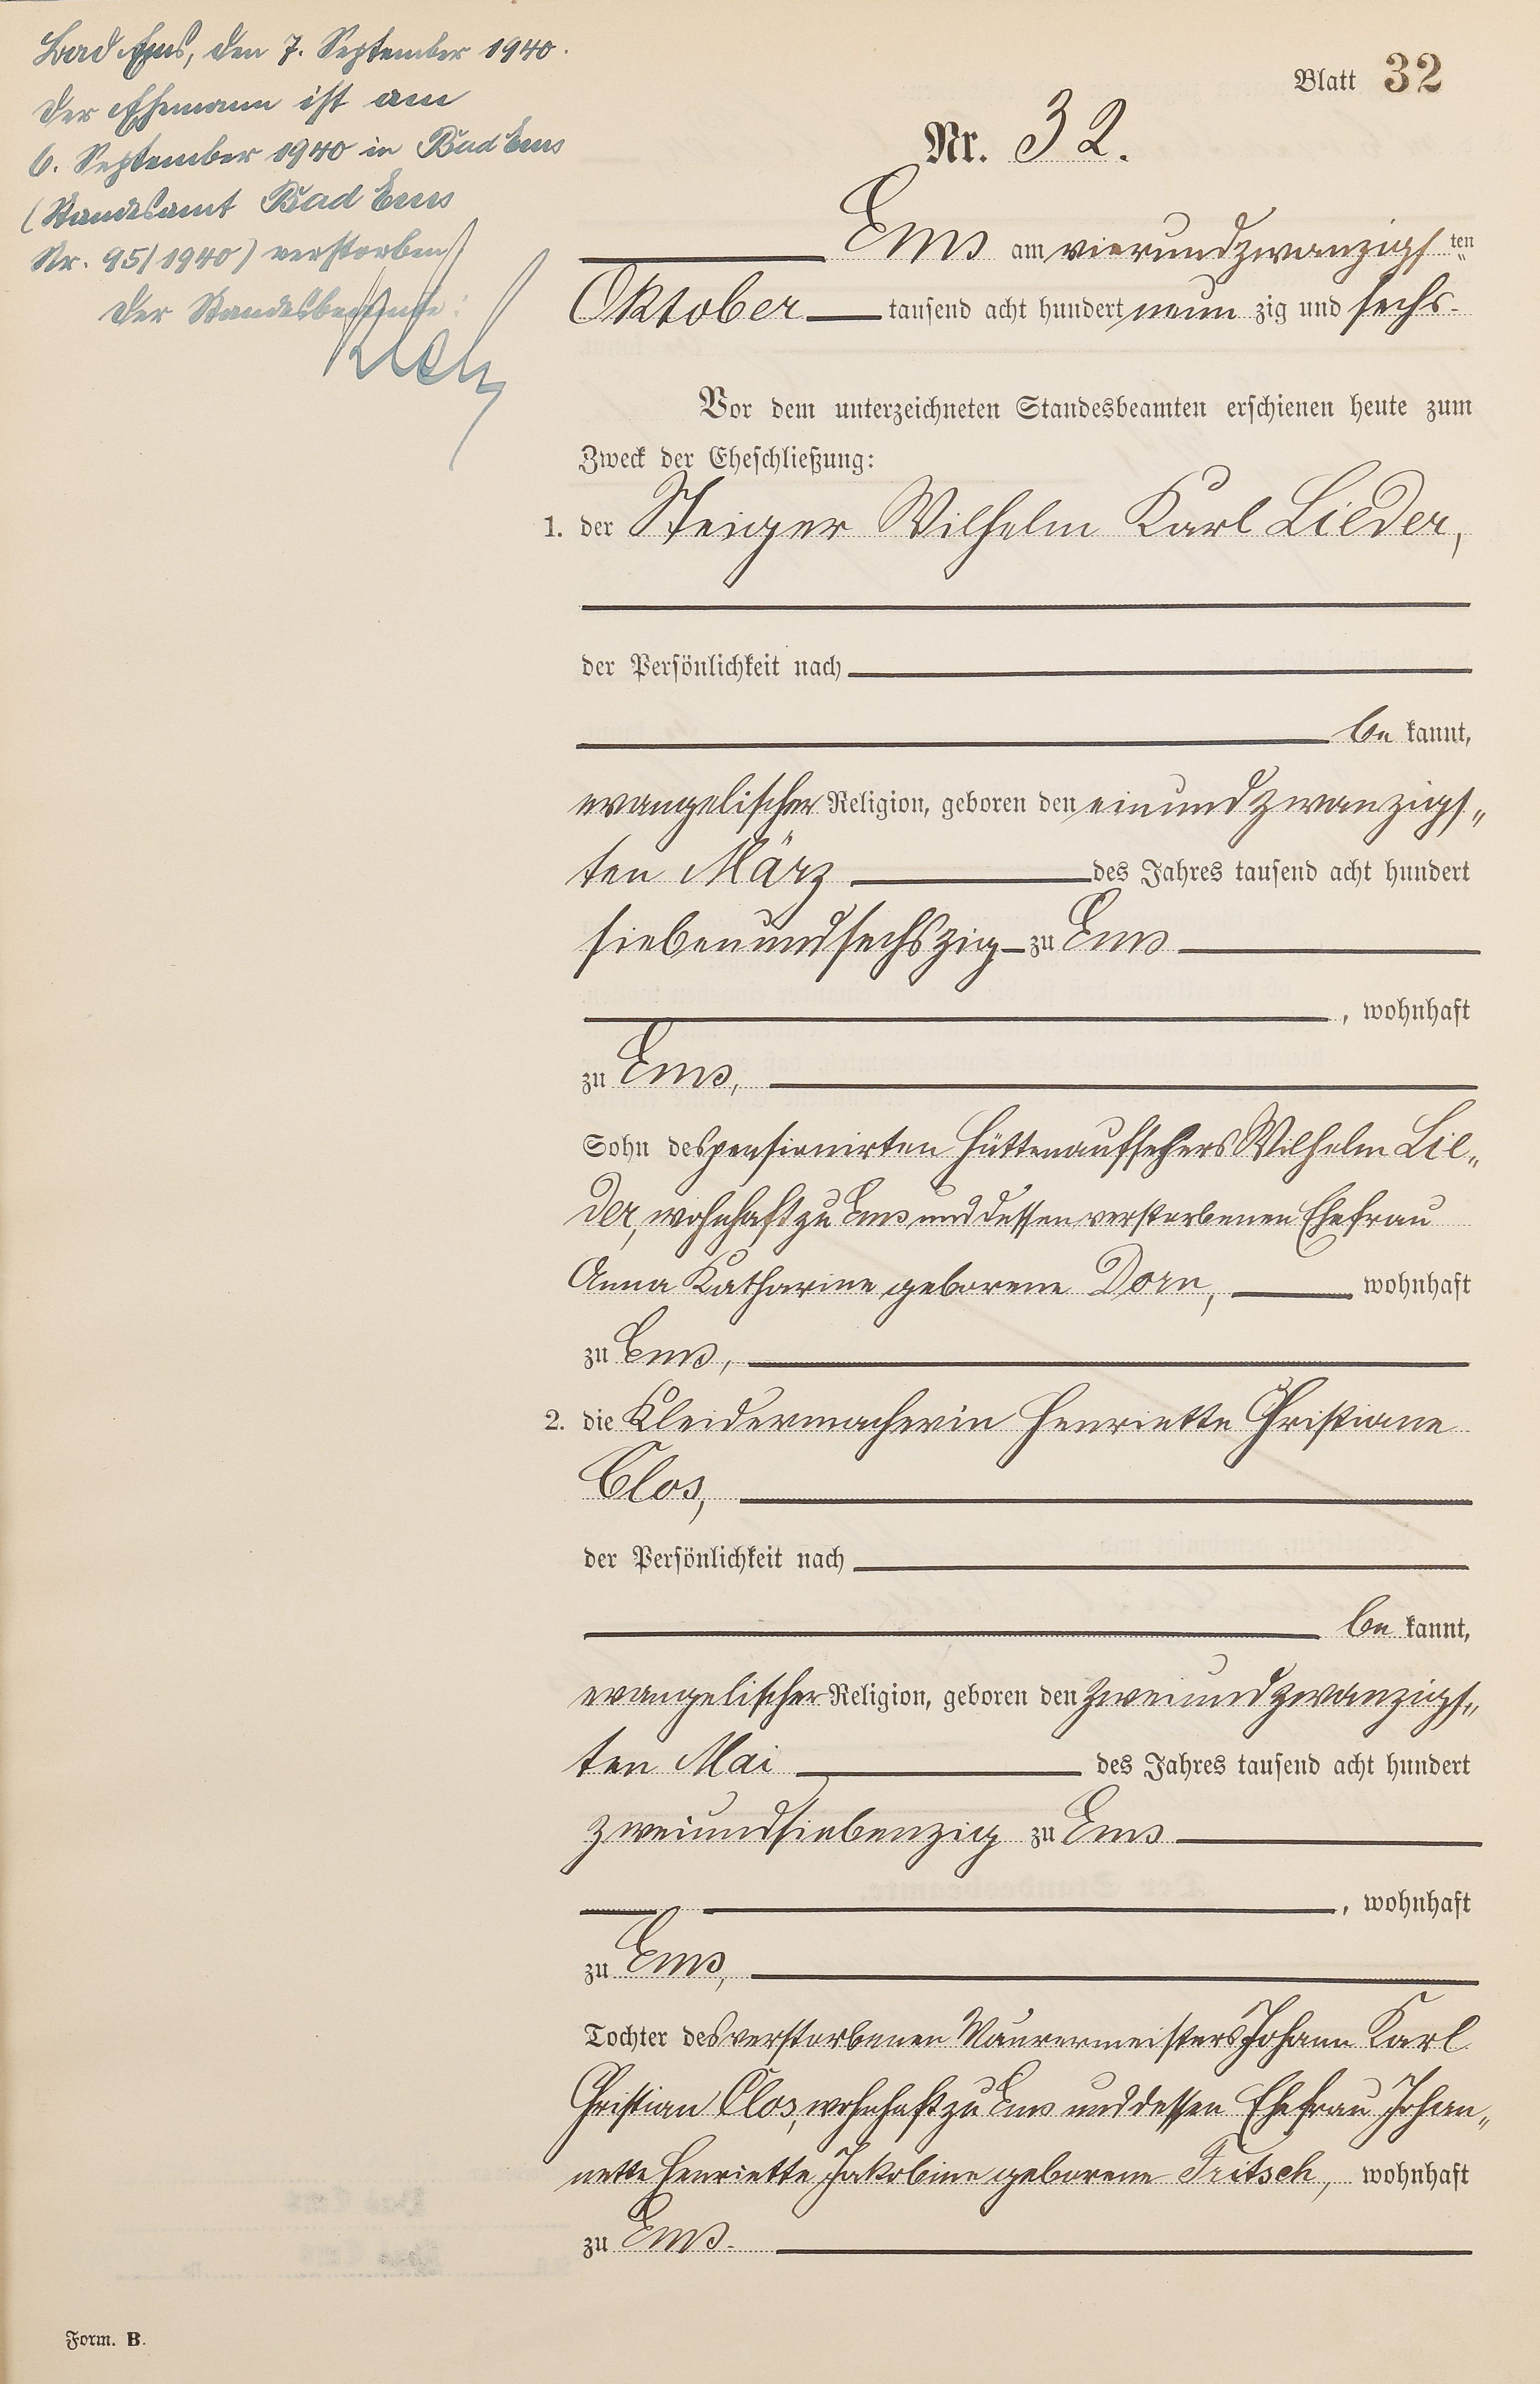 Bad Ems, den 7. September 1940.
Der Ehemann ist am
6. September 1940 in Bad Ems
(Standesamt Bad Ems
Nr. 95/1940) verstorben
Der Standesbeamte:
Blatt 32
Nr. 32.
Ems am vierundzwanzigs ten
Oktober tausend acht hundert neun zig und sechs.
Vor dem unterzeichneten Standesbeamten erschienen heute zum
Zweck der Eheschließung:
1. der Steiger Wilhelm Karl Lieder,
der Persönlichkeit nach
be kannt,
evangelischer Religion, geboren den einundzwanzigs„
ten März des Jahres tausend acht hundert
siebenundsechszig zu Ems
, wohnhaft
zu Ems,
Sohn des pensionirten Hüttenaufsehers Wilhelm Lie„
der, wohnhaft zu Ems und dessen verstorbenen Ehefrau
Anna Katharine geborene Dorn, wohnhaft
zu Ems,
2. die Kleidermacherin Henriette Christiane
Clos,
der Persönlichkeit nach
be kannt,
evangelischer Religion, geboren den zweiundzwanzigs„
ten Mai des Jahres tausend acht hundert
zweiundsiebenzig zu Ems
, wohnhaft
zu Ems,
Tochter des verstorbenen Maurermeisters Johann Karl
Christian Clos, wohnhaft zu Ems und dessen Ehefrau Johan„
nette Henriette Jakobine geborene Fritsch, wohnhaft
zu Ems.
Form. B.